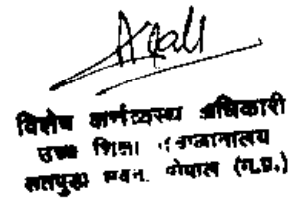 विशेष कर्तव्यस्थ अधिकारी
उच्च शिक्षा संचालनालय
सतपुड़ा भवन, भोपाल (म.प्र.)